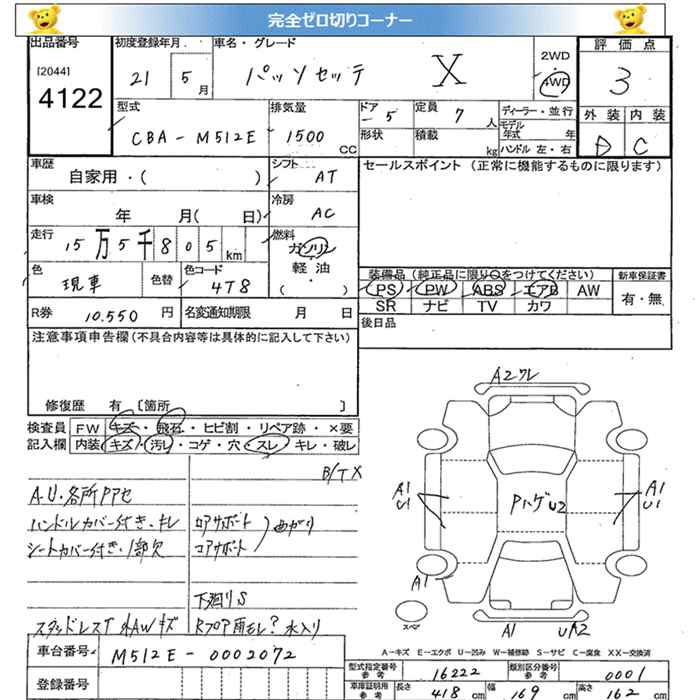 完全ゼロ切りコーナー
出品番号 初度登録年月 車名・グレード 2WD 評価点
[2044] 4122 21 5月 パッソセッテ X 4WD 3
型式 排気量 ドア 5 定員 7人 ディーラー・並行 外装 内装
CBA-M512E 1500CC 形状 積載 kg モデル年式 年 D C
ハンドル 左・右
車歴 シフト セールスポイント (正常に機能するものに限ります)
自家用・( ) AT
車検 冷房
年 月( 日) AC
走行 燃料
15万5千805km ガソリン
軽油
( )
色 現車 色替 色コード 4T8 装備品 (純正品に限り○をつけてください) 新車保証書
PS PW ABS エアB AW 有・無
SR ナビ TV カワ
R券 10.550円 名変通知期限 月 日 後日品
注意事項申告欄(不具合内容等は具体的に記入して下さい)
修復歴 有 [箇所 ]
検査員 FW キズ・飛石・ヒビ割・リペア跡・×要
記入欄 内装 キズ・汚レ・コゲ・穴・スレ・キレ・破レ
B/TX
A.U.各所ササセ
ハンドルカバー付き・キレ ロアサポート
シートカバー付き・1部欠 コアサポート 曲がり
下廻りS
スタッドレスT 外AWキズ Rフロア雨モレ? 水入り
A2ワレ
A1 U1 PハゲU2 A1 U1
A1
スペア A1 UA2
A-キズ E-エクボ U-凹み W-補修跡 S-サビ C-腐食 XX-交換済
車台番号 M512E-0002072 型式指定番号 参考 16222 類別区分番号 参考 0001
登録番号 車庫証明用 参考 長さ 418cm 幅 169cm 高さ 162cm